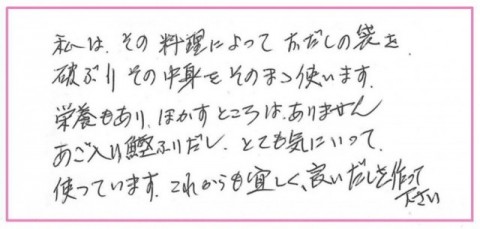 私は、その料理によっておだしの袋を、
破ぶりその中身をそのまゝ使います。
栄養もあり、ほかすところは、ありません
あご入り鰹ふりだし、とても気にいって、
使っています。これからも宜しく、良いだしを作って
下さい